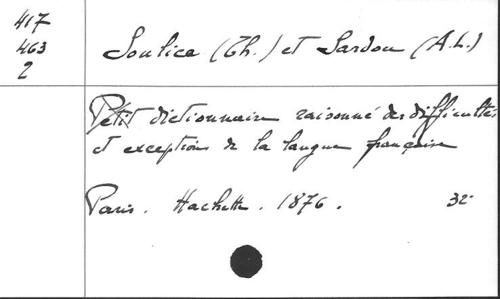 417
463
2
Soulice (Th.) et Sardou (A.L.)
Petit dictionnaire raisonné des difficultés
et exceptions de la langue française
Paris. Hachette. 1876. 32